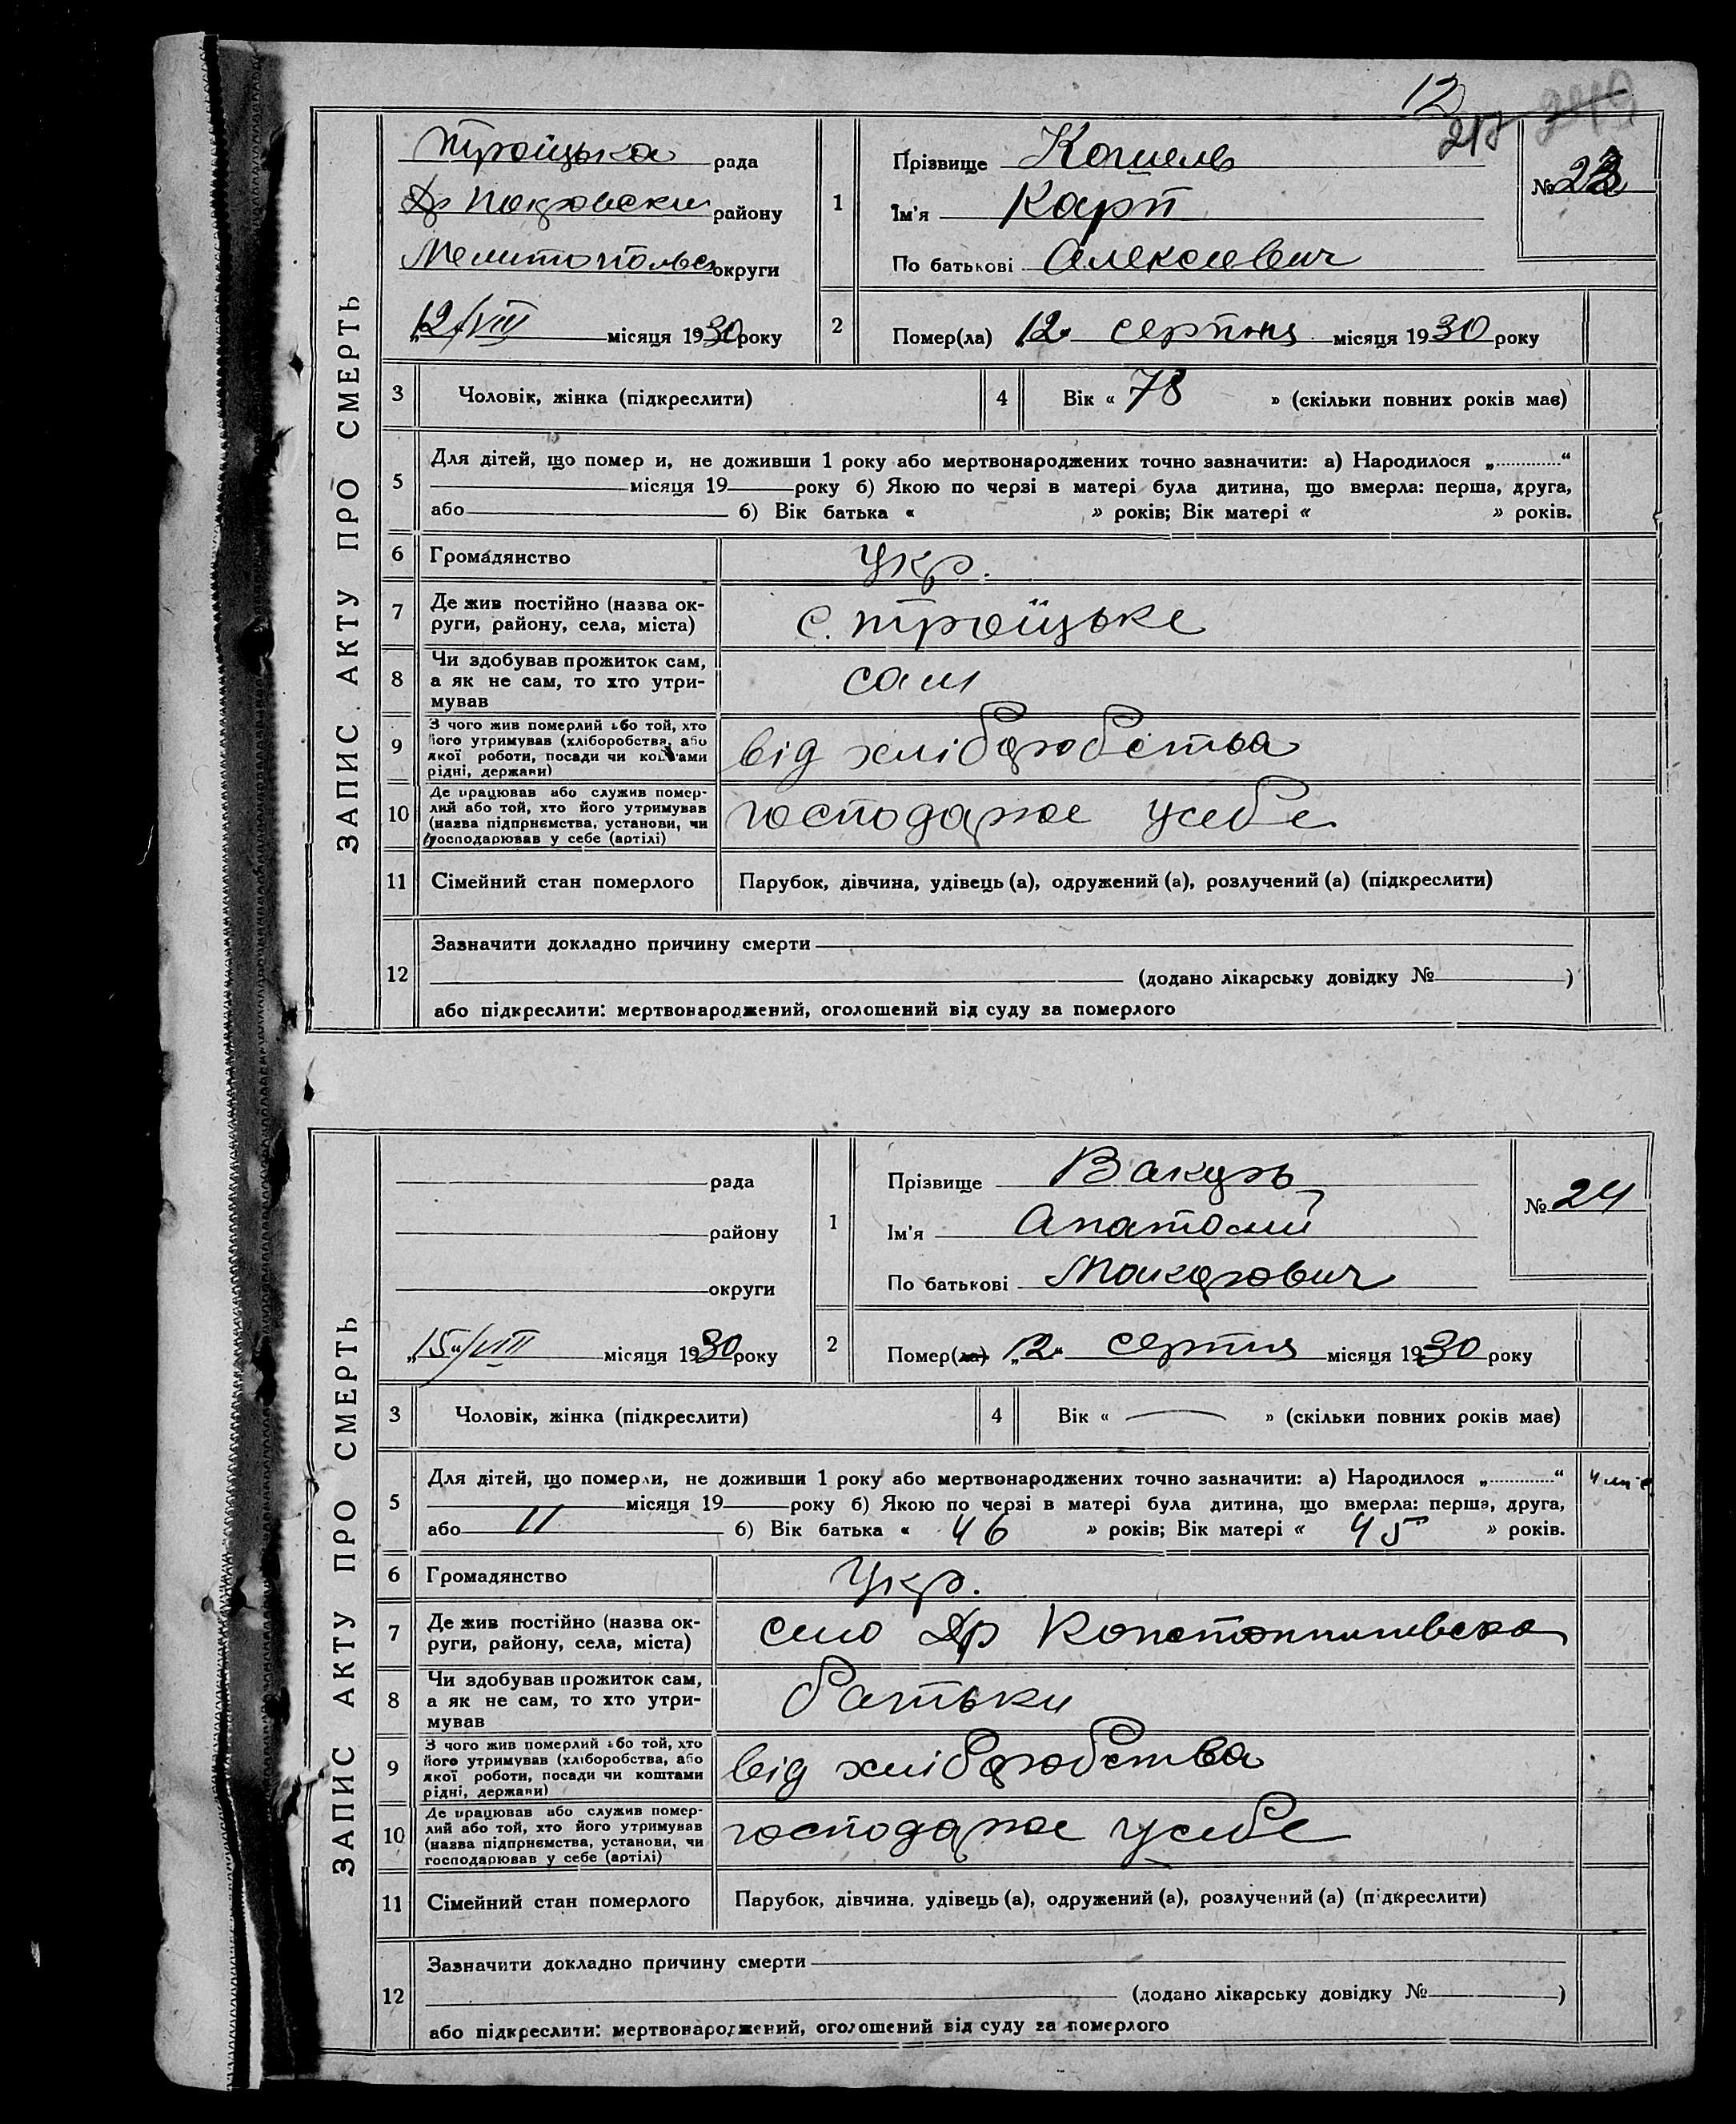 12
218 249
ЗАПИС АКТУ ПРО СМЕРТЬ
Троїцька рада
Др Покровськи району
Мелитопольсь округи
„12/VIII місяця 1930 року
1
Прізвище Кошель
Ім'я Карп
По батькові Алексеевич
№ 23
2
Помер(ла) „12" серпня місяця 1930 року
3 Чоловік, жінка (підкреслити)
4 Вік « 78 » (скільки повних років має)
5 Для дітей, що помер и, не доживши 1 року або мертвонароджених точно зазначити: а) Народилося „............“
місяця 19 року б) Якою по черзі в матері була дитина, що вмерла: перша, друга,
або б) Вік батька « » років; Вік матері « » років.
6 Громадянство Укр.
7 Де жив постійно (назва ок-
руги, району, села, міста) с. Троїцьке
8 Чи здобував прожиток сам,
а як не сам, то хто утри-
мував сам
9 З чого жив померлий або той, хто
його утримував (хліборобства, або
якої роботи, посади чи коштами
рідні, держави) від хліборобства
10 Де працював або служив помер-
лий або той, хто його утримував
(назва підприємства, установи, чи
господарював у себе (артілі) господарює усебе
11 Сімейний стан померлого Парубок, дівчина, удівець (а), одружений (а), розлучений (а) (підкреслити)
12 Зазначити докладно причину смерти
(додано лікарську довідку № )
або підкреслити: мертвонароджений, оголошений від суду за померлого
ЗАПИС АКТУ ПРО СМЕРТЬ
рада
району
округи
„15"/VIII місяця 1930 року
1
Прізвище Вакуль
Ім'я Анатолий
По батькові Макарович
№ 24
2
Помер(ла) „12" серпня місяця 1930 року
3 Чоловік, жінка (підкреслити)
4 Вік « — » (скільки повних років має)
5 Для дітей, що померли, не доживши 1 року або мертвонароджених точно зазначити: а) Народилося „............“
місяця 19 року б) Якою по черзі в матері була дитина, що вмерла: перша, друга,
або 11 б) Вік батька « 46 » років; Вік матері « 45 » років.
6 Громадянство Укр.
7 Де жив постійно (назва ок-
руги, району, села, міста) село Др Константинівка
8 Чи здобував прожиток сам,
а як не сам, то хто утри-
мував батьки
9 З чого жив померлий або той, хто
його утримував (хліборобства, або
якої роботи, посади чи коштами
рідні, держави) від хліборобства
10 Де працював або служив помер-
лий або той, хто його утримував
(назва підприємства, установи, чи
господарював у себе (артілі) господарює усебе
11 Сімейний стан померлого Парубок, дівчина, удівець (а), одружений (а), розлучений (а) (підкреслити)
12 Зазначити докладно причину смерти
(додано лікарську довідку № )
або підкреслити: мертвонароджений, оголошений від суду за померлого